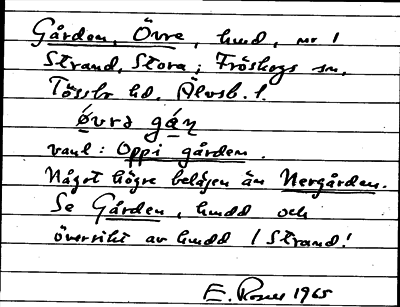 Gården, Övre, hmd, nr 1
Strand, Stora; Fröskogs sn,
Tössbo hd. Älvsb. l.
ǿvrə gán
vanl: Oppi gården.
Något högre belägen än Nergården.
Se Gården, hmdd och
översikt av hmdd / Strand!
E. Rosell 1965